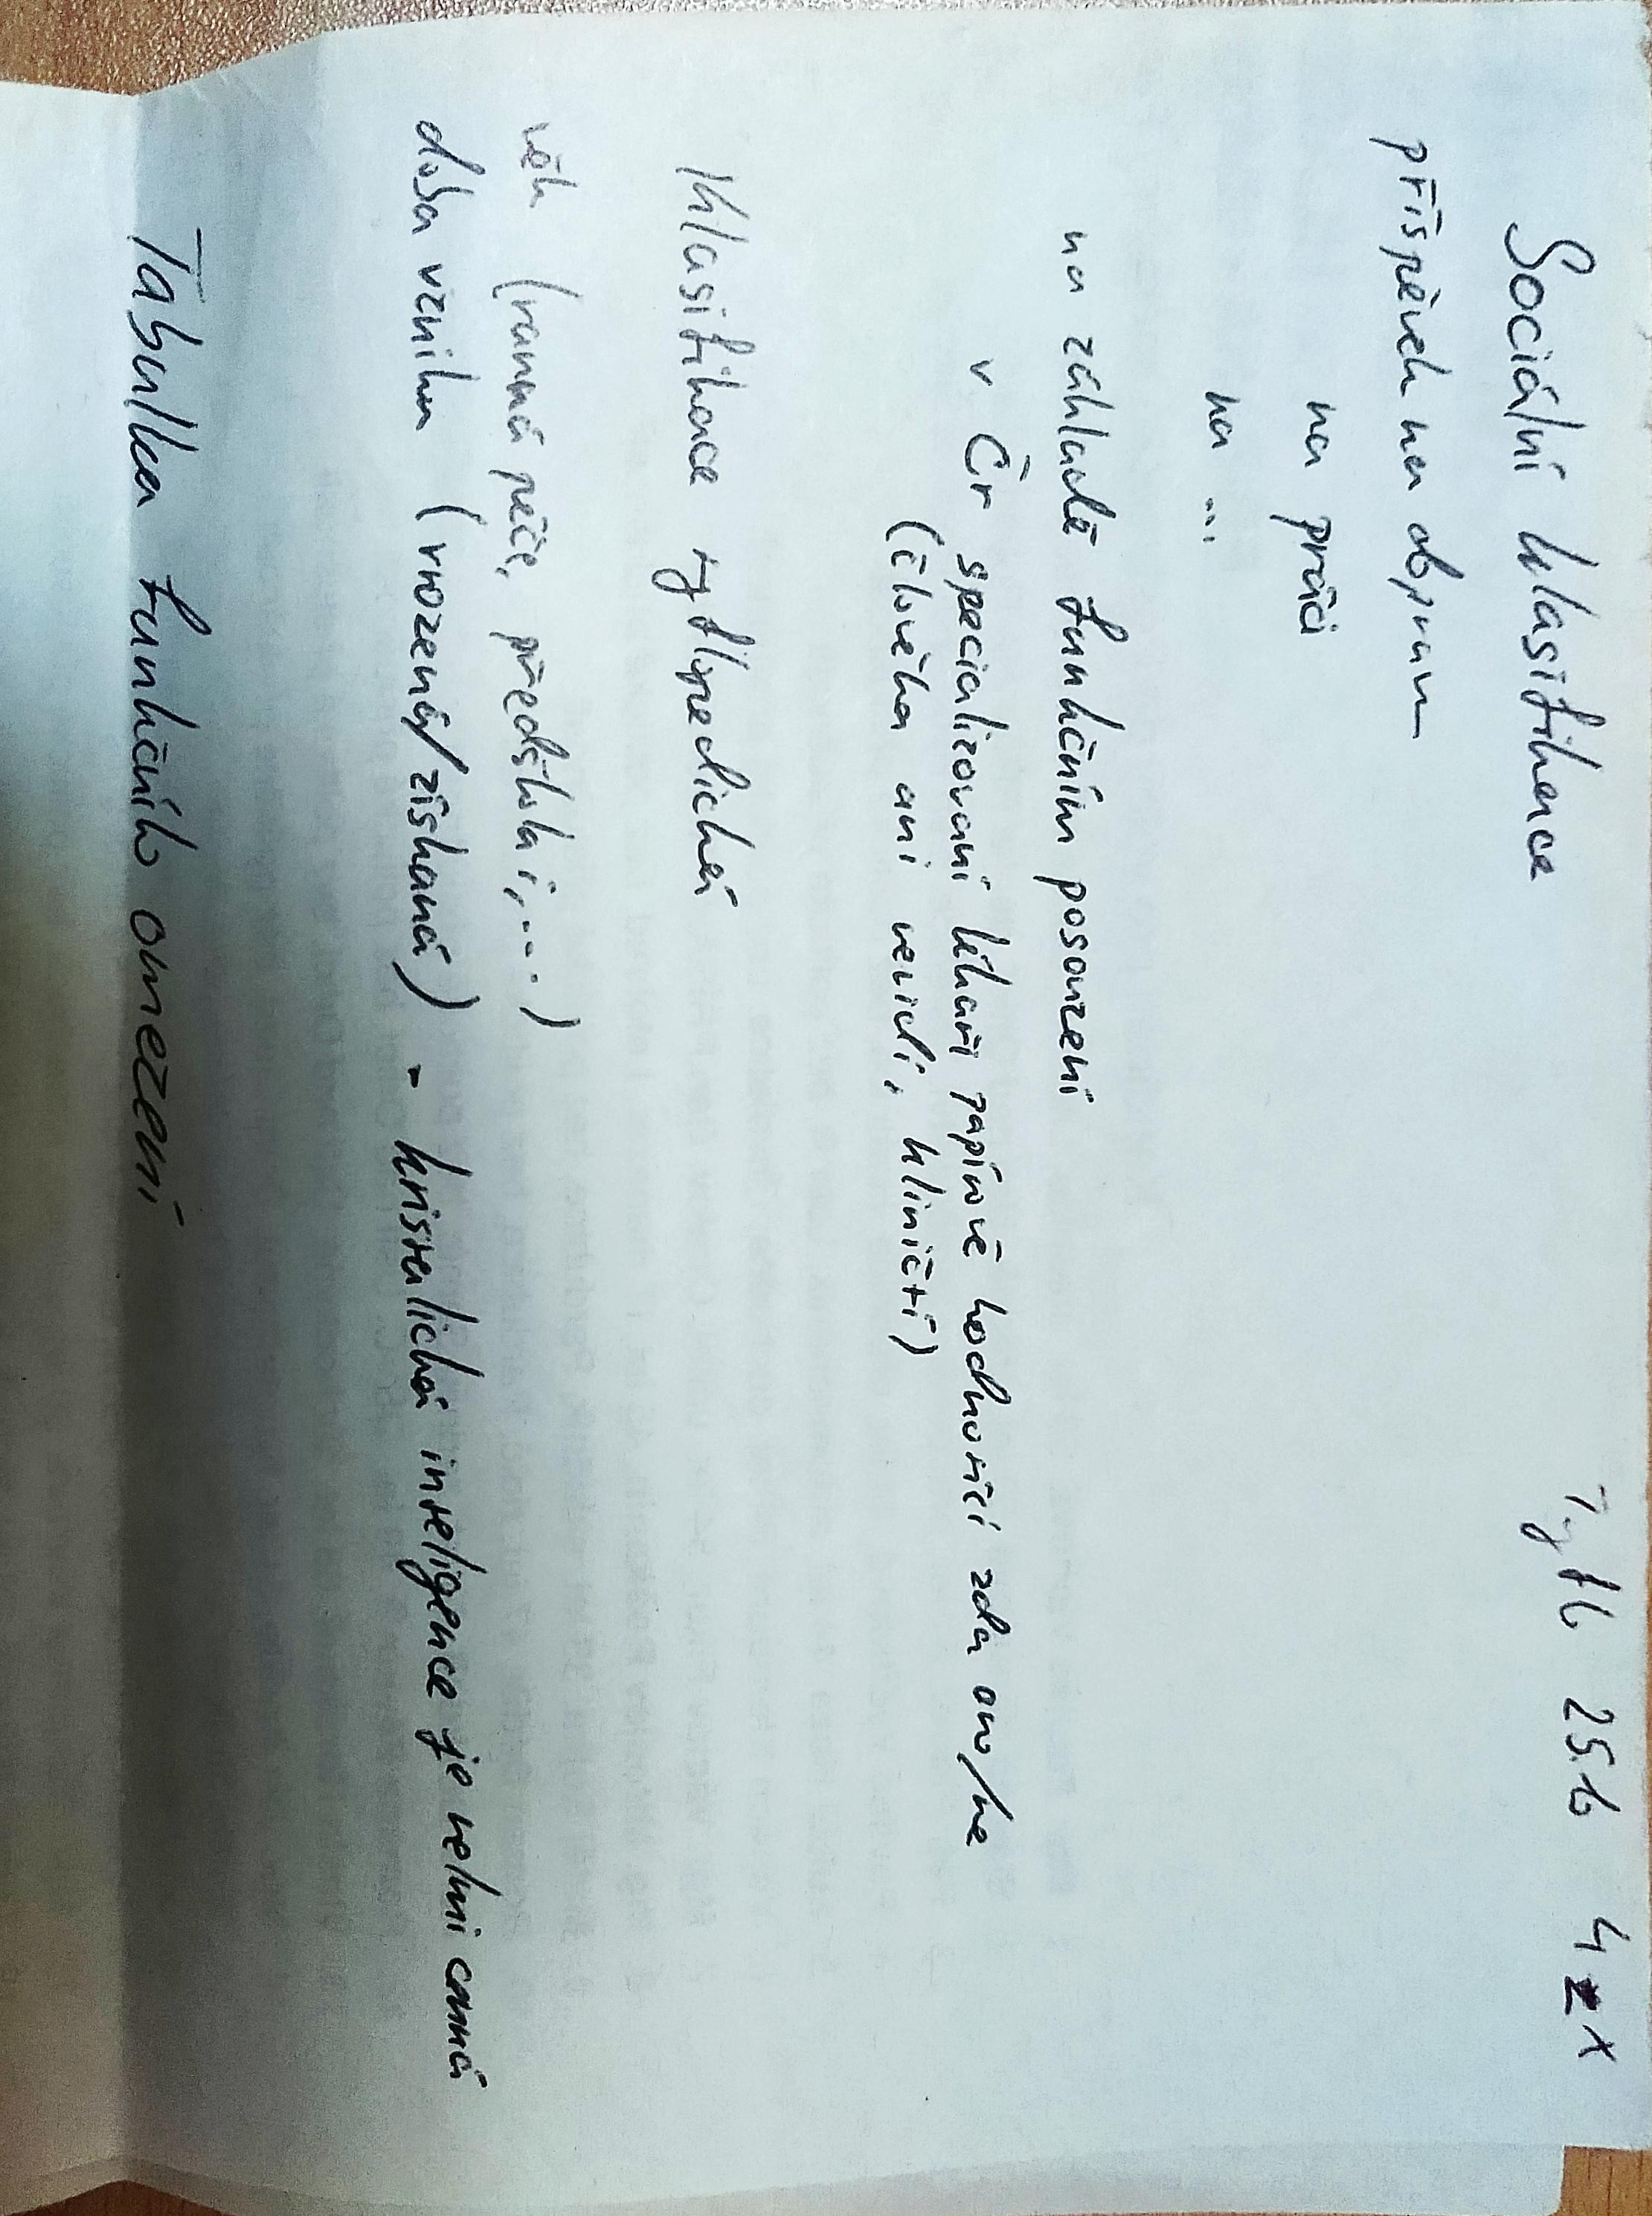 Tyflo 25.10 4zx
Sociální klasifikace
příspěvek na dopravu
na práci
na ...
na základě funkčním posouzení
v Čr specializovaní lékaři papírově hodnotící zda ano/ne
(člověka ani nevidí, kliničtí)
Klasifikace tyflopedická
věk (ranná péče, předškolní,...)
doba vzniku (vrozená/získaná) - kristalická inteligence je velmi cenná
Tabulka funkčního omezení